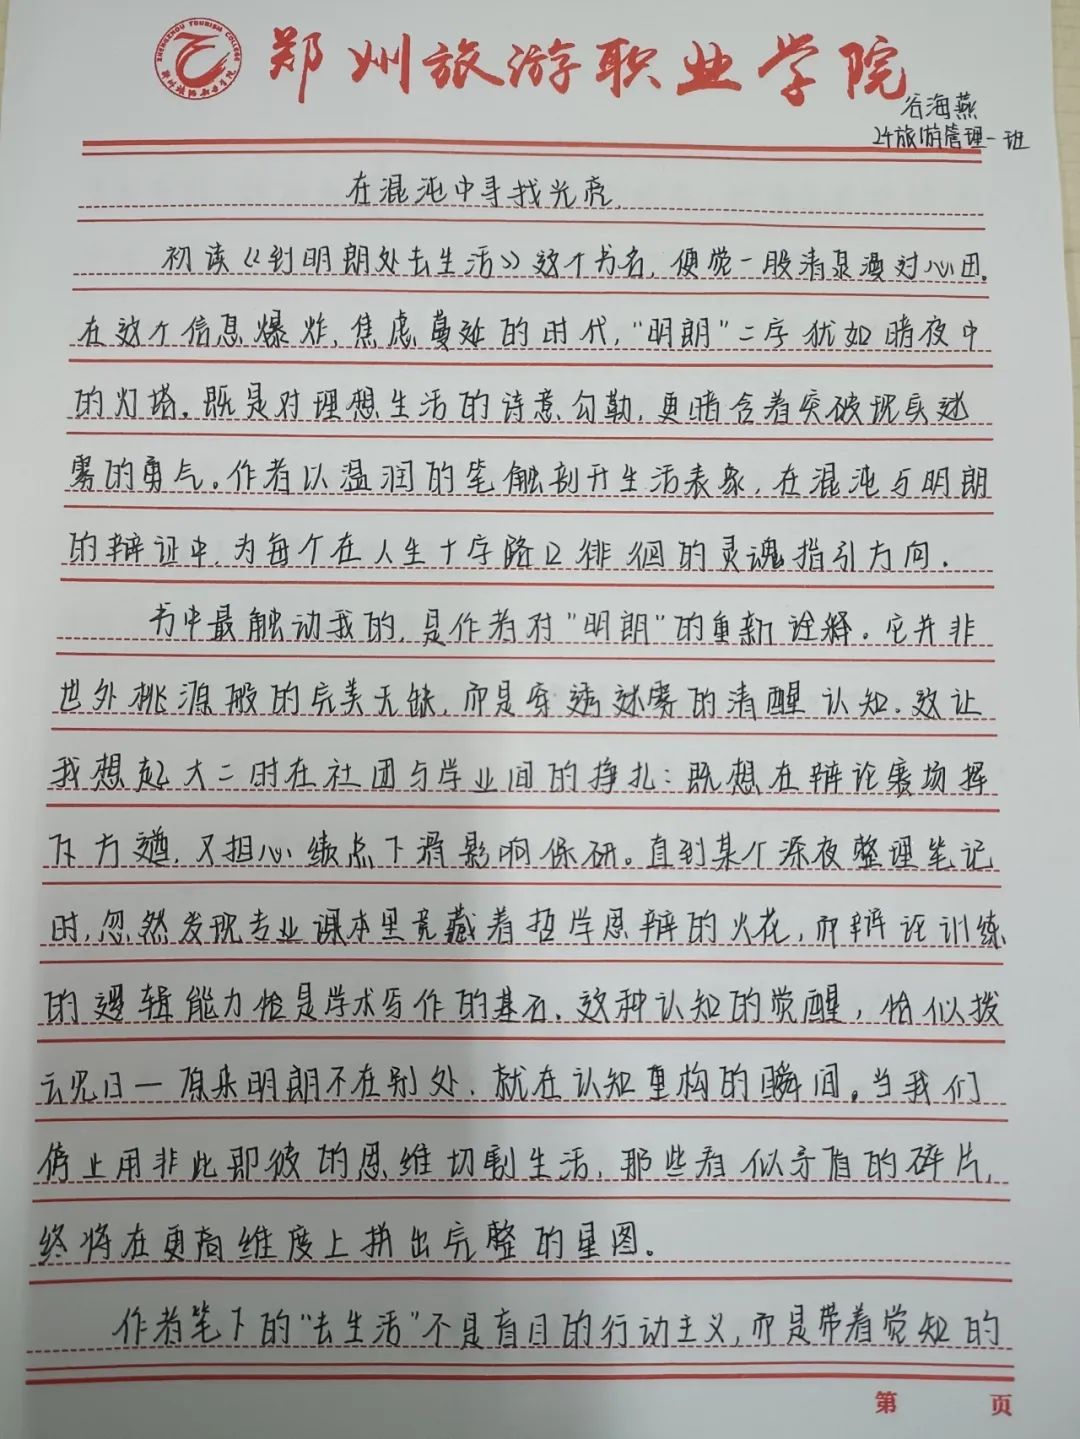 ZHENGZHOU TOURISM COLLEGE
郑州旅游职业学院
郑州旅游职业学院
谷海燕
24旅游管理一班
在混沌中寻找光亮.
初读《到明朗处去生活》这个书名,便觉一股清泉漫过心田.
在这个信息爆炸,焦虑蔓延的时代,"明朗"二字犹如暗夜中
的灯塔。既是对理想生活的诗意勾勒,更暗含着突破现实迷
雾的勇气。作者以温润的笔触剖开生活表象,在混沌与明朗
的辩证中,为每个在人生十字路口徘徊的灵魂指引方向.
书中最触动我的,是作者对"明朗"的重新诠释。它并非
世外桃源般的完美无缺,而是穿透迷雾的清醒认知.这让
我想起大二时在社团与学业间的挣扎:既想在辩论赛场挥
斥方遒,又担心绩点下滑影响保研。直到某个深夜整理笔记
时,忽然发现专业课本里竟藏着哲学思辩的火花,而辩论训练
的逻辑能力恰是学术写作的基石.这种认知的觉醒,恰似拨
云见日—原来明朗不在别处.就在认知重构的瞬间。当我们
停止用非此即彼的思维切割生活,那些看似矛盾的碎片,
终将在更高维度上拼出完整的星图。
作者笔下的"去生活"不是盲目的行动主义,而是带着觉知的
第 页